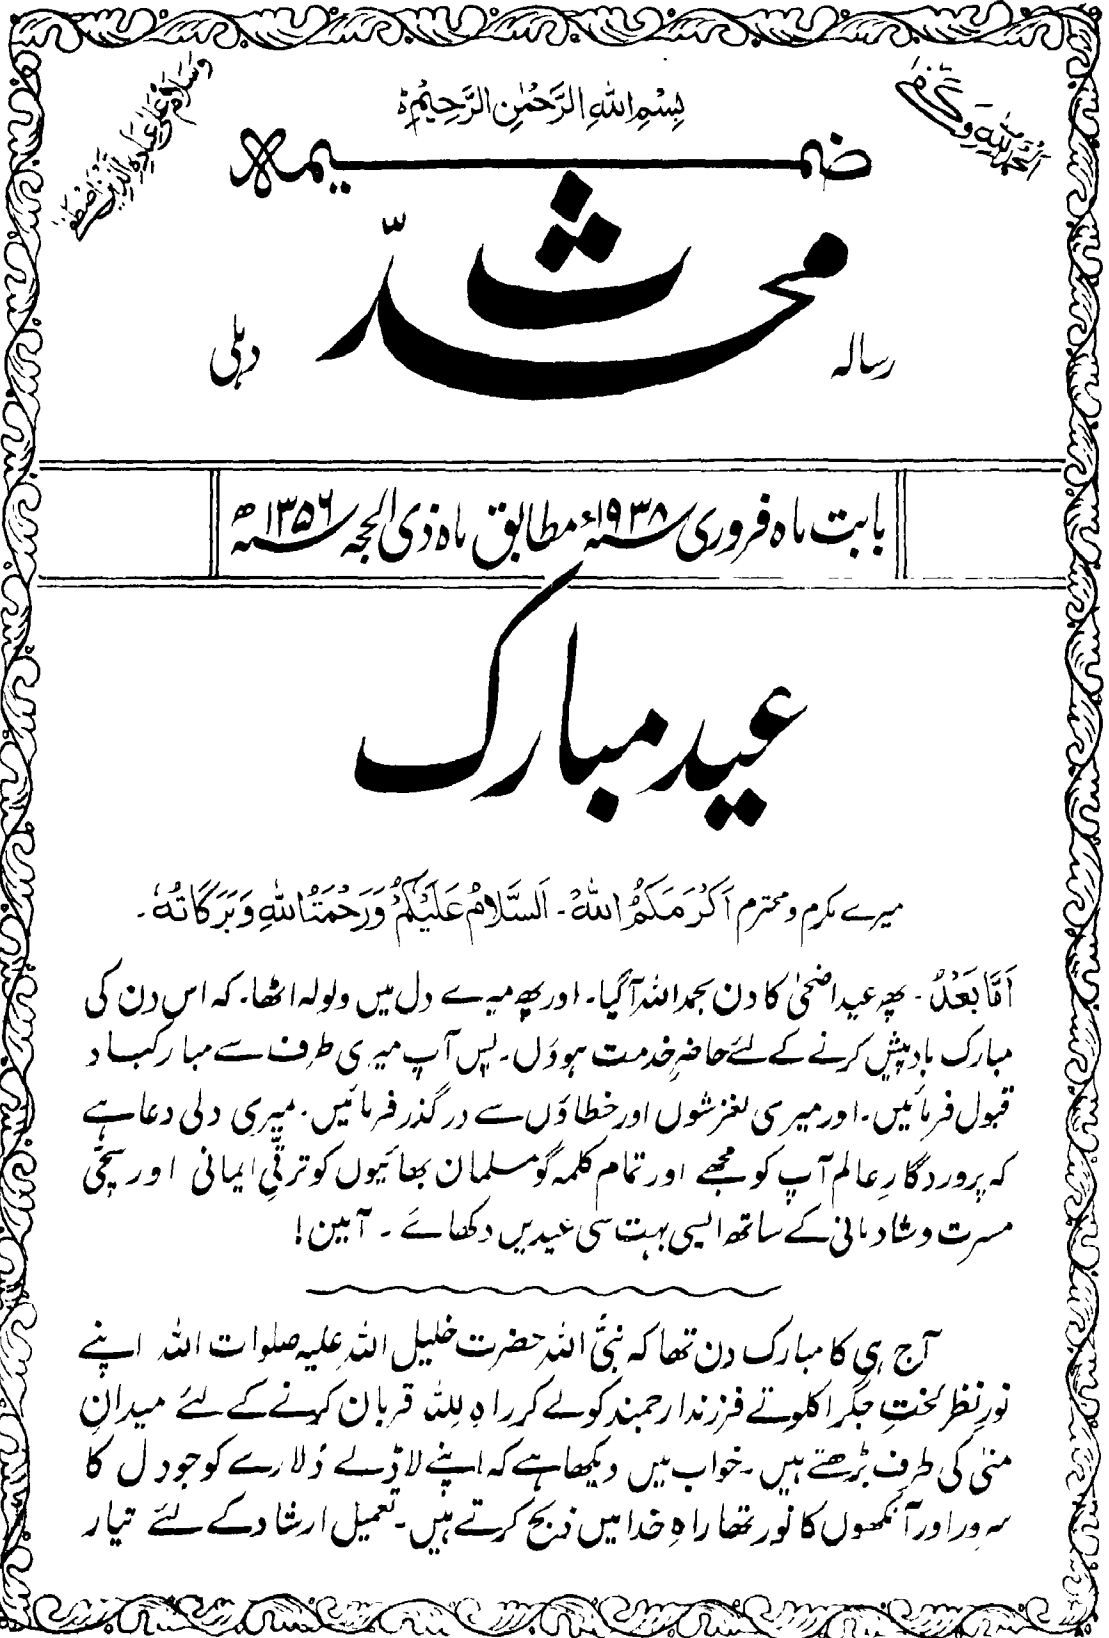 بِسْمِ اللهِ الرَّحْمٰنِ الرَّحِيْمِ
الحمد للہ وکفیٰ
وسلام علیٰ عبادہ الذین اصطفیٰ
ضمیمہ
محدّث
رسالہ
دہلی
بابت ماہ فروری سنہ ۱۹۳۸ء مطابق ماہ ذی الحجہ سنہ ۱۳۵۶ھ
عید مبارک
میرے مکرم و محترم اَکْرَمَکُمُ اللهُ۔ اَلسَّلَامُ عَلَیْکُمْ وَرَحْمَتُ اللهِ وَبَرَکَاتُہٗ۔
اَمَّا بَعْدُ۔ پھر عید اضحیٰ کا دن بحمد اللہ آگیا۔ اور پھر میرے دل میں ولولہ اٹھا۔ کہ اس دن کی
مبارک باد پیش کرنے کے لئے حاضرِ خدمت ہوؤں۔ پس آپ میری طرف سے مبارکباد
قبول فرمائیں۔ اور میری لغزشوں اور خطاؤں سے درگذر فرمائیں۔ میری دلی دعا ہے
کہ پروردگارِ عالم آپ کو مجھے اور تمام کلمہ گو مسلمان بھائیوں کو ترقّیِ ایمانی اور سچّی
مسرت و شادمانی کے ساتھ ایسی بہت سی عیدیں دکھائے۔ آمین!
آج ہی کا مبارک دن تھا کہ نبیُّ اللہ حضرت خلیل اللہ علیہ صلوات اللہ اپنے
نورِ نظر لختِ جگر اکلوتے فرزندِ ارجمند کو لے کر راہِ للہ قربان کرنے کے لئے میدانِ
منیٰ کی طرف بڑھتے ہیں۔ خواب میں دیکھا ہے کہ اپنے لاڈلے دُلارے کو جو دل کا
سرور اور آنکھوں کا نور تھا راہِ خدا میں ذبح کرتے ہیں۔ تعمیل ارشاد کے لئے تیار